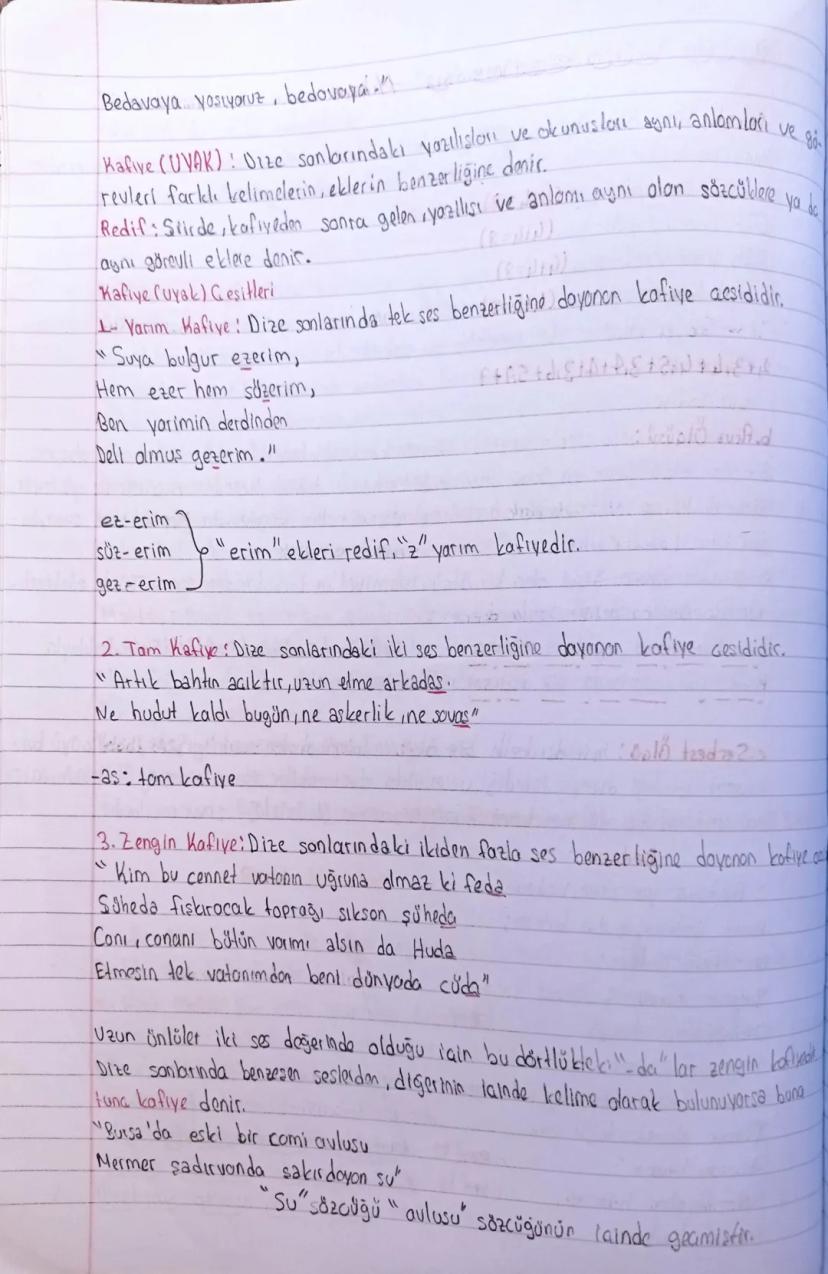 Bedavaya yaşıyoruz, bedavaya."
Kafiye (UYAK): Dize sonlarındaki yazılışları ve okunuşları aynı, anlamları ve gö-
revleri farklı kelimelerin, eklerin benzerliğine denir.
Redif: Şiirde, kafiyeden sonra gelen, yazılışı ve anlamı aynı olan sözcüklere ya da
aynı görevli eklere denir.
Kafiye (uyak) Çeşitleri
1- Yarım Kafiye: Dize sonlarında tek ses benzerliğine dayanan kafiye çeşididir.
"Suya bulgur ezerim,
Hem ezer hem süzerim,
Ben yarimin derdinden
Deli olmuş gezerim."
ez-erim
süz-erim "erim" ekleri redif, "z" yarım kafiyedir.
gez-erim
2. Tam Kafiye: Dize sonlarındaki iki ses benzerliğine dayanan kafiye çeşididir.
"Artık bahtın açıktır, uzun elme arkadaş.
Ne hudut kaldı bugün, ne askerlik, ne savaş"
-aş: tam kafiye
3. Zengin Kafiye: Dize sonlarındaki ikiden fazla ses benzerliğine dayanan kafiye
"Kim bu cennet vatanın uğruna olmaz ki feda
Şüheda fışkıracak toprağı sıksan şüheda
Canı, cananı bütün varımı alsın da Huda
Etmesin tek vatanımdan beni dünyada cüda"
Uzun ünlüler iki ses değerinde olduğu için bu dörtlükteki "-da"lar zengin kafiyedir.
Dize sonlarında benzeşen seslerden, diğerinin içinde kelime olarak bulunuyorsa buna
tunç kafiye denir.
"Bursa'da eski bir cami avlusu
Mermer şadırvanda şakırdayan su"
"Su" sözcüğü "avlusu" sözcüğünün içinde geçmiştir.